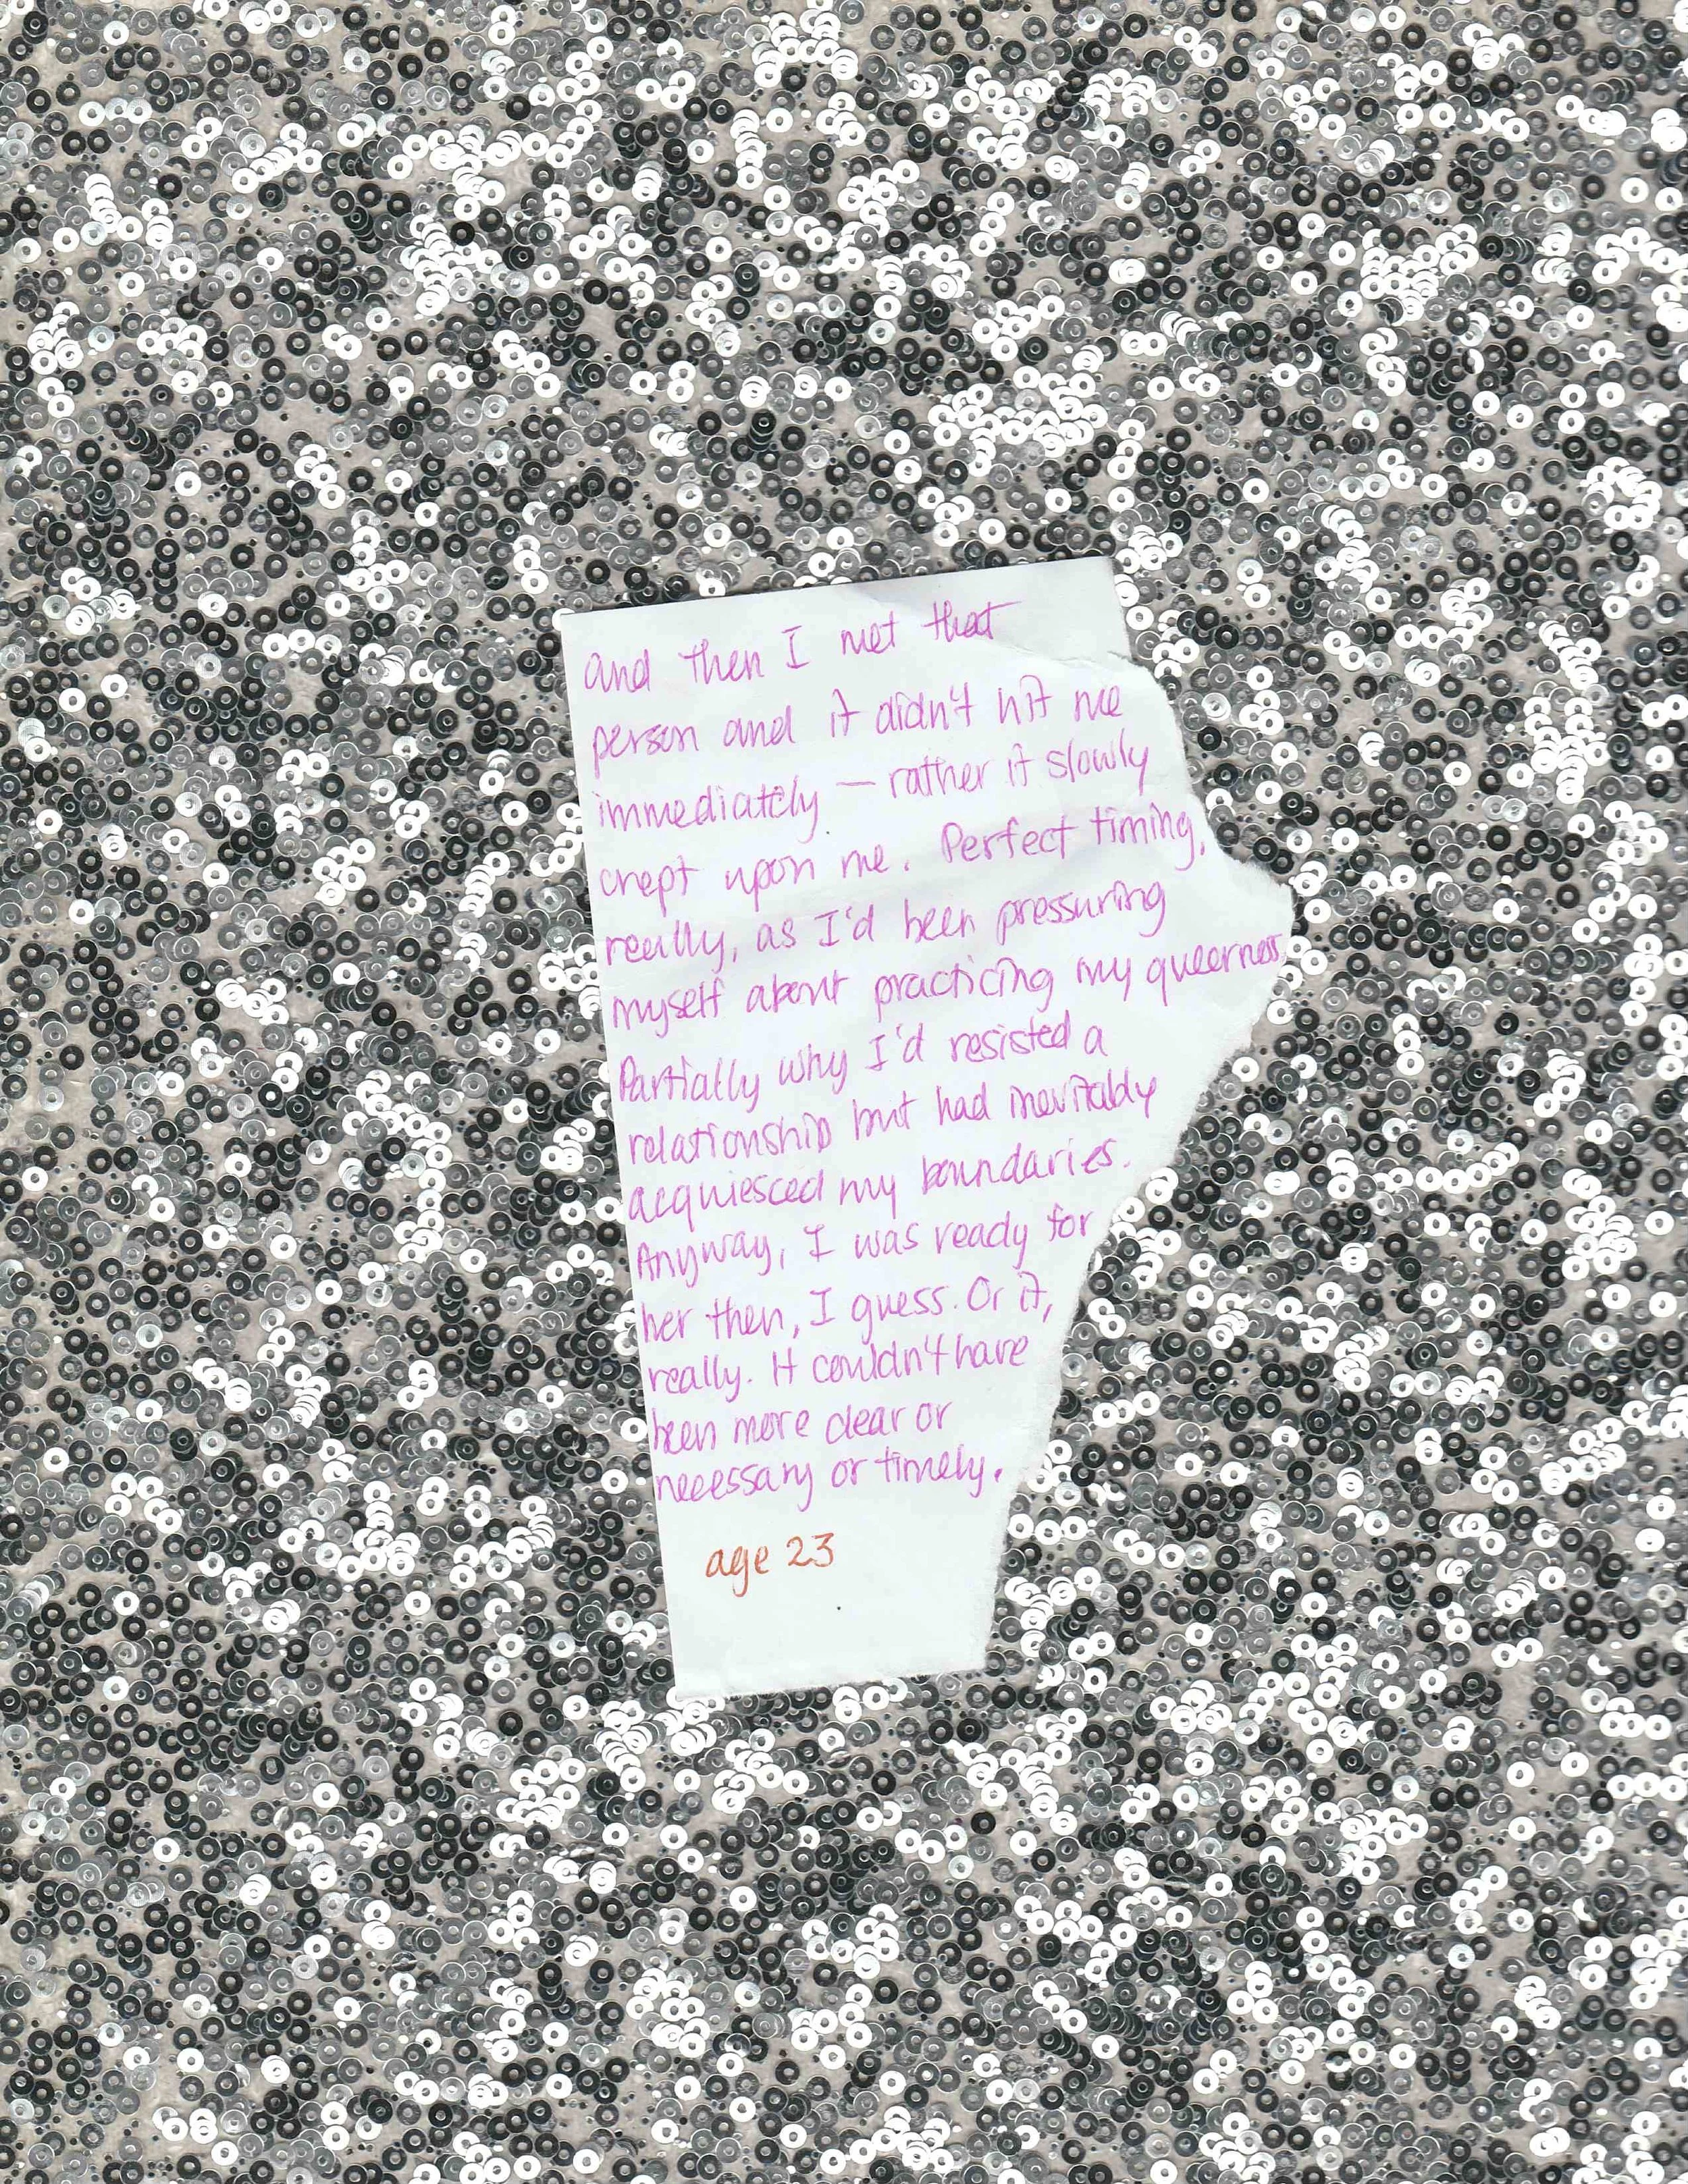 and then I met that
person and it didn't hit me
immediately — rather it slowly
crept upon me. Perfect timing,
really, as I'd been pressuring
myself about practicing my queerness.
Partially why I'd resisted a
relationship but had inevitably
acquiesced my boundaries.
Anyway, I was ready for
her then, I guess. Or it,
really. It couldn't have
been more clear or
necessary or timely.
age 23